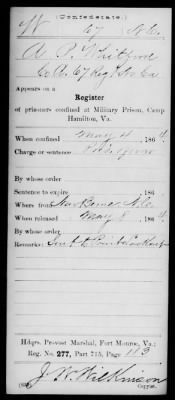 (Confederate.)
W 67 N.C.
A. P. Whitford
Co. A, 67 Reg't N.C.
Appears on a
Register
of prisoners confined at Military Prison, Camp
Hamilton, Va.
When confined May 4, 186
Charge or sentence
By whose order
Sentence to expire , 186 .
Where from New Berne N.C.
When released May 8, 186
By whose order
Remarks: Sent to Point Lookout
Hdqrs. Provost Marshal, Fort Monroe, Va.;
Reg. No. 277, Part 715, Page 113
J. W. Wilkinson
Copyist.